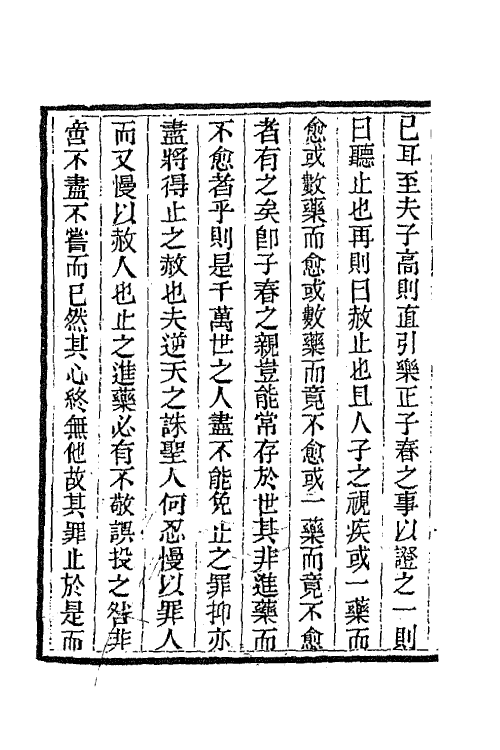 已耳至夫子高則直引樂正子春之事以證之一則
曰聽止也再則曰赦止也且人子之視疾或一藥而
愈或數藥而愈或數藥而竟不愈或一藥而竟不愈
者有之矣卽子春之親豈能常存於世其非進藥而
不愈者乎則是千萬世之人盡不能免止之罪抑亦
盡將得止之赦也夫逆天之誅聖人何忍慢以罪人
而又慢以赦人也止之進藥必有不敬誤投之咎非
啻不盡不嘗而已然其心終無他故其罪止於是而